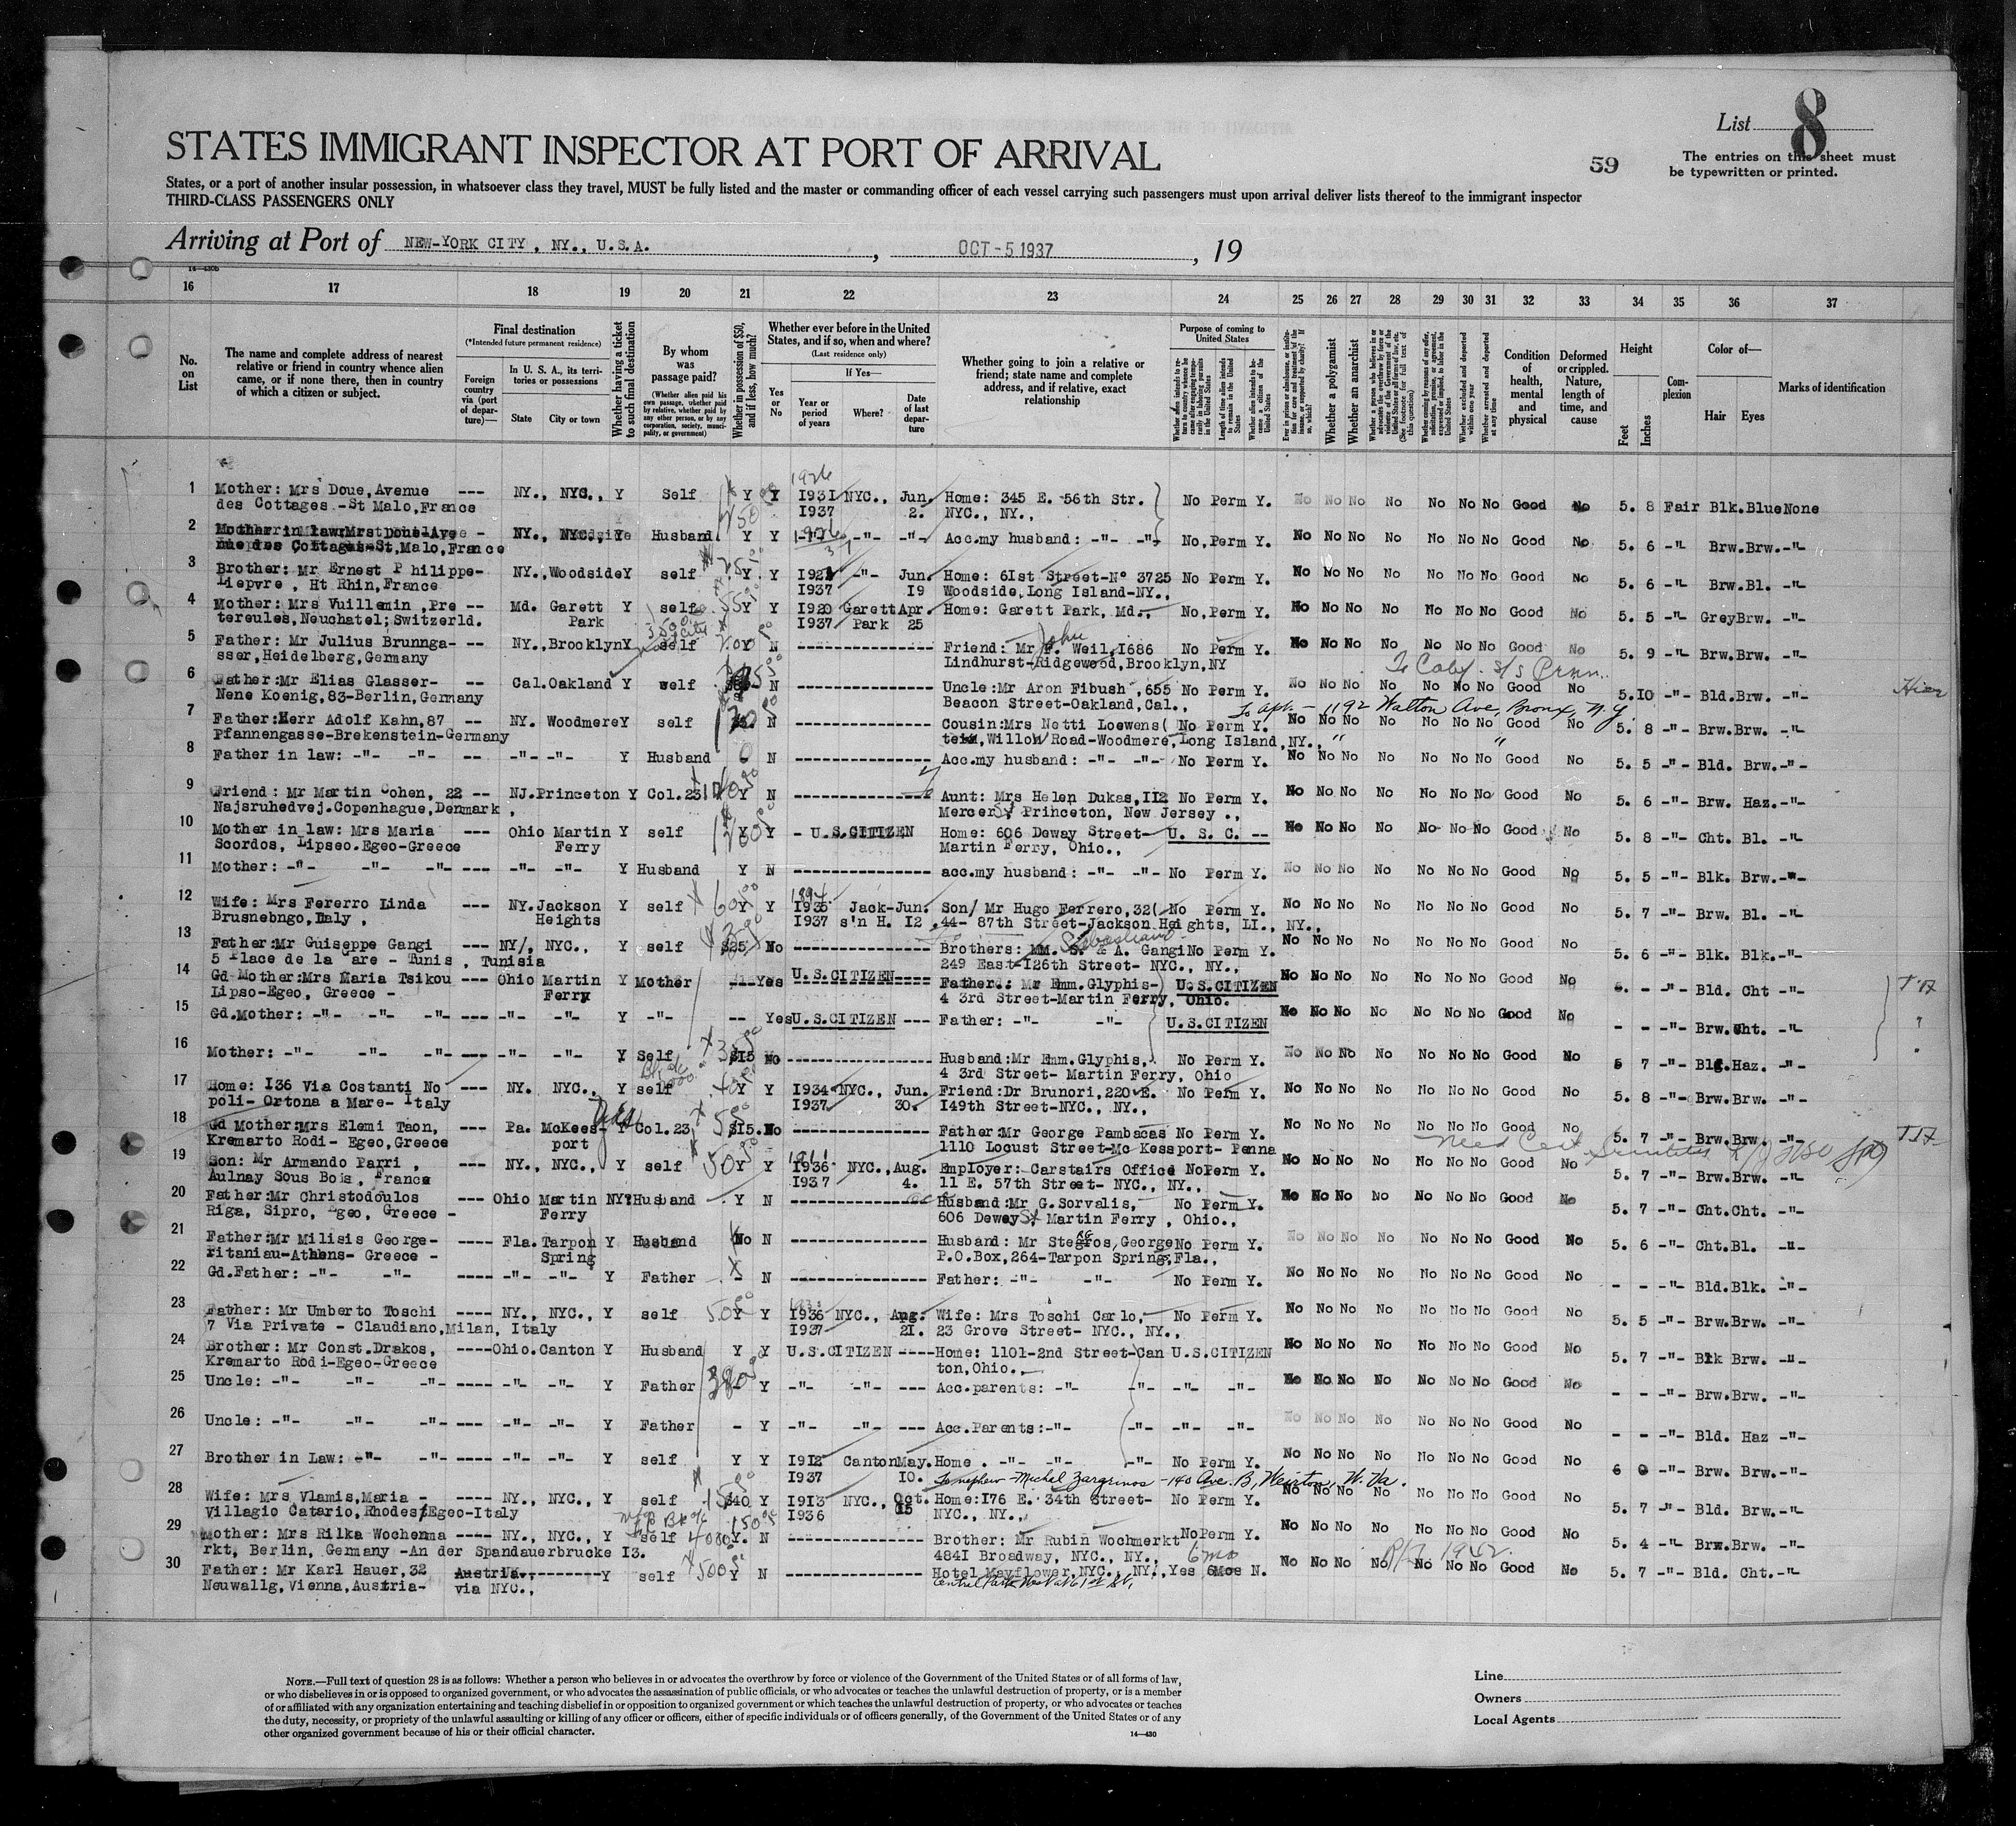 List 8
59
The entries on this sheet must
be typewritten or printed.
STATES IMMIGRANT INSPECTOR AT PORT OF ARRIVAL
States, or a port of another insular possession, in whatsoever class they travel, MUST be fully listed and the master or commanding officer of each vessel carrying such passengers must upon arrival deliver lists thereof to the immigrant inspector
THIRD-CLASS PASSENGERS ONLY
Arriving at Port of NEW-YORK CITY, NY., U.S.A. , OCT - 5 1937 , 19
14—430b
16 17 18 19 20 21 22 23 24 25 26 27 28 29 30 31 32 33 34 35 36 37
No. on List
The name and complete address of nearest relative or friend in country whence alien came, or if none there, then in country of which a citizen or subject.
Final destination
(*Intended future permanent residence)
Foreign country via (port of departure)—
In U. S. A., its territories or possessions
State City or town
Whether having a ticket to such final destination
By whom was passage paid?
(Whether alien paid his own passage, whether paid by relative, whether paid by any other person, or by any corporation, society, municipality, or government)
Whether in possession of $50, and if less, how much?
Whether ever before in the United States, and if so, when and where?
(Last residence only)
Yes or No
If Yes—
Year or period of years Where? Date of last departure
Whether going to join a relative or friend; state name and complete address, and if relative, exact relationship
Purpose of coming to United States
Length of time alien intends to remain in the United States
Whether alien intends to become a citizen of the United States
Whether a polygamist
Whether an anarchist
Whether excluded and deported within one year
Whether arrested and deported at any time
Condition of health, mental and physical
Deformed or crippled. Nature, length of time, and cause
Height
Feet Inches
Complexion
Color of—
Hair Eyes
Marks of identification
1926
1 Mother: Mrs Doue, Avenue --- NY., NYC., Y Self Y Y 1931 NYC., Jun. Home: 345 E. 56th Str. No Perm Y. No No No No No No No Good No 5. 8 Fair Blk. Blue None
des Cottages -St Malo, France 1937 2. NYC., NY.,
2 NY., Y Husband. Y Y -"- -"- Acc.my husband: -"- -"- No, Perm Y. No No No No No No No Good No 5. 6 -"- Brw. Brw. -"-
nue des Cottages-St, Malo, France
3 Brother: Mr Ernest Philippe- NY., Woodside Y self Y Y -"- Jun. Home: 61st Street-N° 3725 No Perm Y. No No No No No No No Good No 5. 6 -"- Brw. Bl. -"-
Liepvre, Ht Rhin, France 1937 19 Woodside, Long Island-NY.,
4 Mother: Mrs Vuillemin, Pre -- Md. Garett Y self Y Y 1920 Garett Apr. Home: Garett Park, Md., No, Perm Y. No No No No No No No Good No 5. 5 -"- Grey Brw. -"-
tereules, Neuchatel; Switzerld. Park 1937 Park 25
5 Father: Mr Julius Brunnga- -- NY., Brooklyn Y self Y N -------------- Friend: Mr John Weil, 1686 No Perm Y. No No No No No No No Good No 5. 9 -"- Brw. Brw. -"-
sser, Heidelberg, Germany Lindhurst-Ridgewood, Brooklyn, NY
6 Father: Mr Elias Glasser- -- Cal. Oakland Y self N -------------- Uncle: Mr Aron Fibush, 655 No Perm Y. No No No No No No No Good No 5. 10 -"- Bld. Brw. -"-
Nene Koenig, 83-Berlin, Germany Beacon Street-Oakland, Cal.,
1192 Walton Ave, Bronx, N.Y.
7 Father: Herr Adolf Kahn, 87 -- NY. Woodmere Y self N -------------- Cousin: Mrs Netti Loewens( No Perm Y. No No No No No No No Good No 5. 8 -"- Brw. Brw. -"-
Pfannengasse-Brekenstein-Germany tein, Willow Road-Woodmere, Long Island, NY.,
8 Father in law: -"- -"- -- -"- -"- Y Husband 0 N -------------- Acc.my husband: -"- -"- No Perm Y. No No No No No No No Good No 5. 5 -"- Bld. Brw. -"-
9 Friend: Mr Martin Cohen, 22 -- NJ. Princeton Y Col.23 Y N -------------- Aunt: Mrs Helen Dukas, 112 No Perm Y. No No No No No No No Good No 5. 6 -"- Brw. Haz. -"-
Najsruhedvej. Copenhague, Denmark, Mercer St, Princeton, New Jersey .,
10 Mother in law: Mrs Maria --- Ohio Martin Y self Y Y - U.S.CITIZEN Home: 606 Deway Street- U. S. C. -- No No No No No No No Good No 5. 8 -"- Cht. Bl. -"-
Scordos, Lipseo. Egeo-Greece Ferry Martin Ferry, Ohio.,
11 Mother: -"- -"- -"- --- -"- -"- Y Husband Y N -------------- acc.my husband: -"- -"- No Perm Y. No No No No No No No Good No 5. 5 -"- Blk. Brw. -"-
12 Wife: Mrs Fererro Linda --- NY. Jackson Y self Y Y 1935 Jack- Jun. Son/ Mr Hugo Ferrero, 32( No Perm Y. No No No No No No No Good No 5. 7 -"- Brw. Bl. -"-
Brusnebngo, Italy, Heights 1937 s'n H. 12. 44- 87th Street-Jackson Heights, LI., NY.,
13 Father: Mr Guiseppe Gangi --- NY/, NYC., Y self $25 No -------------- Brothers: MM. S. & A. Gangi No Perm Y. No No No No No No No Good No 5. 6 -"- Blk. Blk. -"-
5 Place de la Gare - Tunis, Tunisia 249 East-126th Street- NYC., NY.,
14 Gd Mother: Mrs Maria Tsikou --- Ohio Martin Y Mother --- Yes U.S.CITIZEN ---- Father: Mr Emm. Glyphis- U.S.CITIZEN No No No No No No No Good No - -"- Bld. Cht -"-
Lipso-Egeo, Greece - Ferry 4 3rd Street-Martin Ferry, Ohio.
15 Gd. Mother: -"- -"- -"- --- -"- -"- Y -"- -- Yes U.S.CITIZEN --- Father: -"- -"- U.S.CITIZEN No No No No No No No Good No - - -"- Brw. Cht. -"-
16 Mother: -"- -"- -"- --- -"- -"- Y Self $15 No -------------- Husband: Mr Emm. Glyphis, No Perm Y. No No No No No No No Good No 5 7 -"- Haz. -"-
4 3rd Street- Martin Ferry, Ohio
17 Home: 136 Via Costanti No --- NY. NYC., Y self Y Y 1934 NYC., Jun. Friend: Dr Brunori, 220 E. No Perm Y. No No No No No No No Good No 5. 8 -"- Brw. Brw. -"-
poli- Ortona a Mare- Italy 1937 30. 149th Street-NYC., NY.,
18 Gd Mother: Mrs Elemi Taon, --- Pa. McKees- Y Col.23 $15. No -------------- Father: Mr George Pambacas No Perm Y. No No No No No No No Good No 5. 7 -"- Brw. Brw. -"-
Kremarto Rodi- Egeo, Greece port 1110 Locust Street-Mc Kessport- Penna
19 Son: Mr Armando Parri, --- NY., NYC., Y self Y Y 1936 NYC., Aug. Employer: Carstairs Office No Perm Y. No No No No No No No Good No 5. 7 -"- Brw. Brw. -"-
Aulnay Sous Bois, France 1937 4. 11 E. 57th Street- NYC., NY.,
20 Father: Mr Christodoulos --- Ohio Martin Husband Y N -------------- Husband: Mr G. Sorvalis, No Perm Y. No No No No No No No Good No 5. 7 -"- Cht. Cht. -"-
Riga, Sipro, Egeo, Greece - Ferry 606 Dewey St Martin Ferry, Ohio.,
21 Father: Mr Milisis George- ---- Fla. Tarpon Y Husband No N -------------- Husband: Mr George No Perm Y. No No No No No No No Good No 5. 6 -"- Cht. Bl. -"-
Pitaniau-Athens- Greece - Spring P.O.Box, 264-Tarpon Spring, Fla.,
22 Gd. Father: -"- -"- ---- -"- -"- Y Father - N -------------- Father: -"- -"- No Perm Y. No No No No No No No Good No - - -"- Bld. Blk. -"-
23 Father: Mr Umberto Toschi ---- NY., NYC., Y self Y Y 1936 NYC., Aug. Wife: Mrs Toschi Carlo, No Perm Y. No No No No No No No Good No 5. 5 -"- Brw. Brw. -"-
7 Via Private - Claudiano, Milan, Italy 1937 21. 23 Grove Street- NYC., NY.,
24 Brother: Mr Const. Drakos, ---- Ohio. Canton Y Husband Y Y U.S.CITIZEN ---- Home: 1101-2nd Street-Can U.S.CITIZEN No No No No No No No Good No 5. 7 -"- Blk Brw. -"-
Kremarto Rodi-Egeo-Greece ton, Ohio.
25 Uncle: -"- -"- -"- ---- -"- -"- Y Father - Y -"- -"- --- Acc.parents: -"- -"- -"- -"- No No No No No No No Good No - - -"- Brw. Brw. -"-
26 Uncle: -"- -"- -"- ---- -"- -"- Y Father - Y -"- -"- --- Acc.Parents: -"- -"- -"- -"- No No No No No No No Good No - - -"- Bld. Haz -"-
27 Brother in Law: -"- -"- ---- -"- -"- Y self Y Y 1912 Canton May. Home. -"- -"- -"- No Perm Y. No No No No No No No Good No 6 0 -"- Brw. Brw. -"-
1937 10. To nephew - Michal Zargrinos - 140 Ave. B, Weirton, W. Va.
28 Wife: Mrs Vlamis, Maria - ---- NY., NYC., Y self $40 Y 1913 NYC., Oct. Home: 176 E. 34th Street- No Perm Y. No No No No No No No Good No 5. 7 -"- Bld. Brw. -"-
Villagio Catario, Rhodes/Egeo-Italy 1936 15 NYC., NY.,
29 Mother: Mrs Rilka Wochenma ---- NY., NYC., Y self Y. N -------------- Brother: Mr Rubin Wochmerkt No Perm Y. No No No No No No No Good No 5. 4 -"- Brw. Brw. -"-
rkt, Berlin, Germany -An der Spandauerbrucke 13. 4841 Broadway, NYC., NY.,
30 Father: Mr Karl Hauer, 32 Austria Y self Y N -------------- Hotel Mayflower, NYC., NY., Yes 6Mos N. No No No No No No No Good No 5. 7 -"- Bld. Cht. -"-
Neuwallg, Vienna, Austria- via NYC., Central Park West at 61st St,
NOTE.—Full text of question 28 is as follows: Whether a person who believes in or advocates the overthrow by force or violence of the Government of the United States or of all forms of law,
or who disbelieves in or is opposed to organized government, or who advocates the assassination of public officials, or who advocates or teaches the unlawful destruction of property, or is a member
of or affiliated with any organization entertaining and teaching disbelief in or opposition to organized government or which teaches the unlawful destruction of property, or who advocates or teaches
the duty, necessity, or propriety of the unlawful assaulting or killing of any officer or officers, either of specific individuals or of officers generally, of the Government of the United States or of any
other organized government because of his or their official character.
14—430
Line
Owners
Local Agents